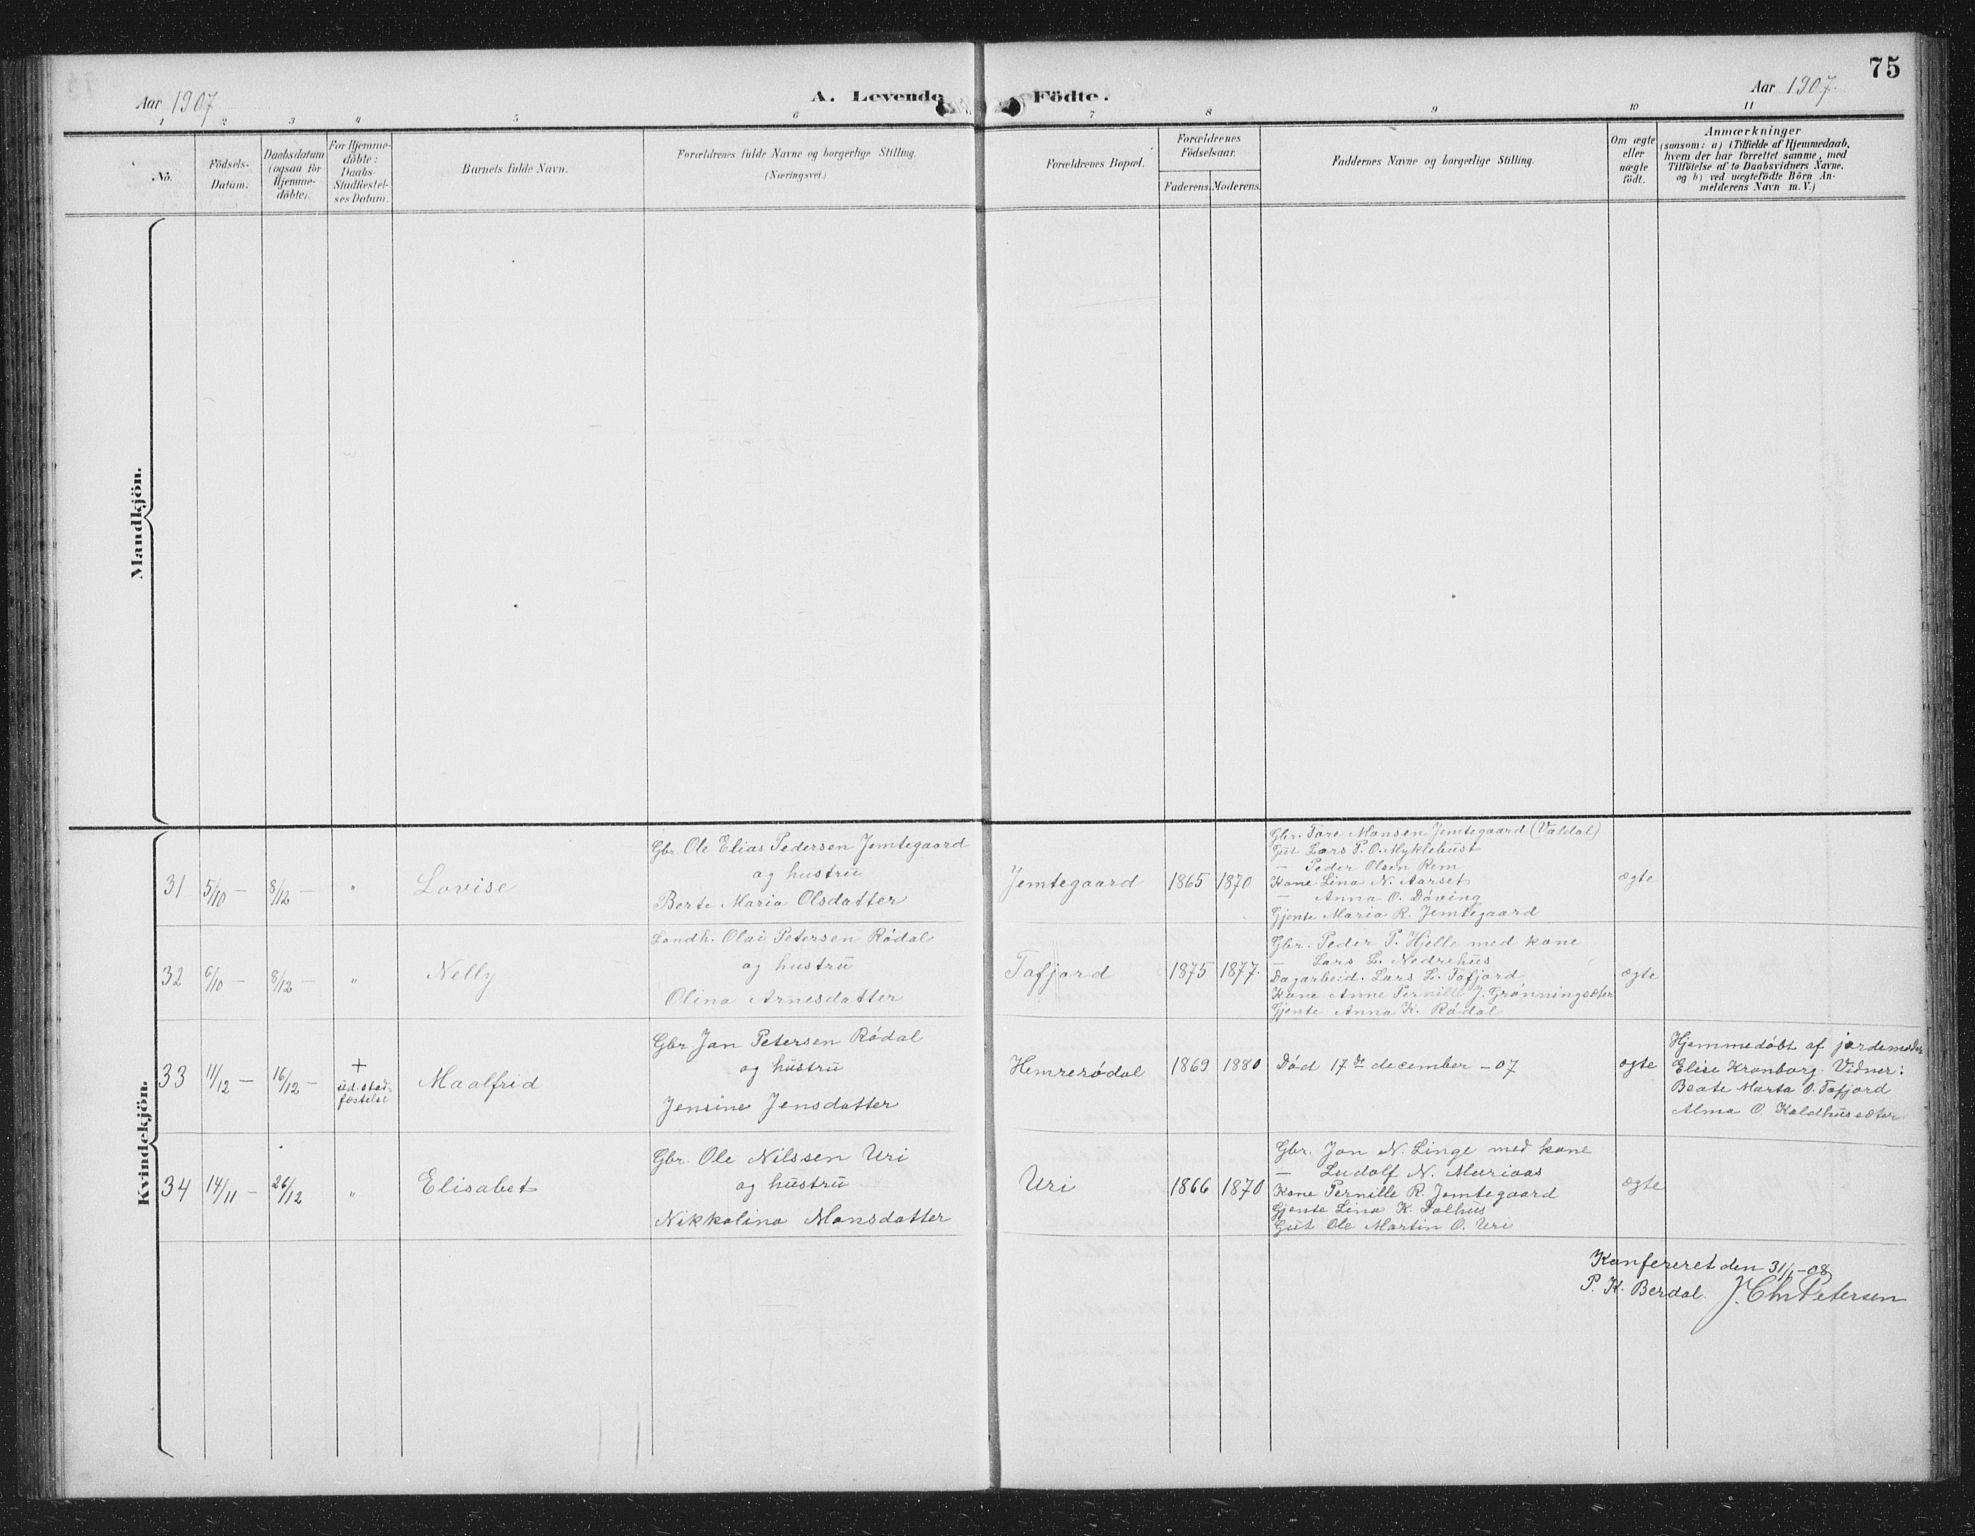 75
Aar 1907
A. Levende Födte.
Aar 1907.
1 2 3 4 5 6 7 8 9 10 11
No.
Födsels-
Datum.
Daabsdatum
(ogsaa for
Hjemme-
döbte).
For Hjemme-
döbte:
Daabs-
Stadfæstel-
ses Datum.
Barnets fulde Navn.
Forældrenes fulde Navne og borgerlige Stilling.
(Næringsvei.)
Forældrenes Bopæl.
Forældrenes
Födselsaar.
Faderens. Moderens.
Faddernes Navne og borgerlige Stilling.
Om ægte
eller
uægte
födt.
Anmærkninger
(saasom: a) i Tilfælde af Hjemmedaab,
hvem der har forrettet samme, med
Tilföielse af to Daabsvidners Navne,
og b) ved uægtefödte Börn An-
melderens Navn m. V.)
Mandkjön.
Kvindekjön.
31 5/10 — 8/12 — " Lovise
Gbr. Ole Elias Pedersen Jemtegaard
og hustru
Berte Maria Olsdatter
Jemtegaard 1865 1870
Gbr. Tore Monsen Jemtegaard (Valdal)
Gut Lars P. O. Myklebust
— Peder Olsen Rem
Kone Lina N. Aarset
— Anna O. Døving
Gjente Maria R. Jemtegaard
ægte
32 6/10 — 8/12 — " Nelly
Landh. Olai Petersen Rødal
og hustru
Olina Arnesdatter
Tafjord 1875 1877.
Gbr. Peder P. Hjelle med kone
— Lars L. Nedrehus
Dagarbeid. Lars L. Tafjord
Kone Anne Pernille J. Grønningsæter
Gjente Anna K. Rødal
ægte
33 11/12 — 16/12 — +
ud. stad-
fæstelse
Maalfrid
Gbr Jon Petersen Rødal
og hustru
Jensine Jensdatter
Hemrerødal 1869 1880 Død 17de december — 07 ægte
Hjemmedøbt af jordemoder
Elise Kronborg. Vidner:
Beate Marta O. Tafjord
Alma O. Kaldhusæter.
34 14/11 — 26/12 " Elisabet
Gbr. Ole Nilssen Uri
og hustru
Nikkoline Monsdatter
Uri 1866 1870
Gbr. Jon N. Linge med kone
— Ludolf N. Muriaas
Kone Pernille R. Jemtegaard
Gjente Lina K. Dalhus
Gut Ole Martin O. Uri
ægte
Konfereret den 31/1-08
P. K. Berdal. J. Chr Petersen